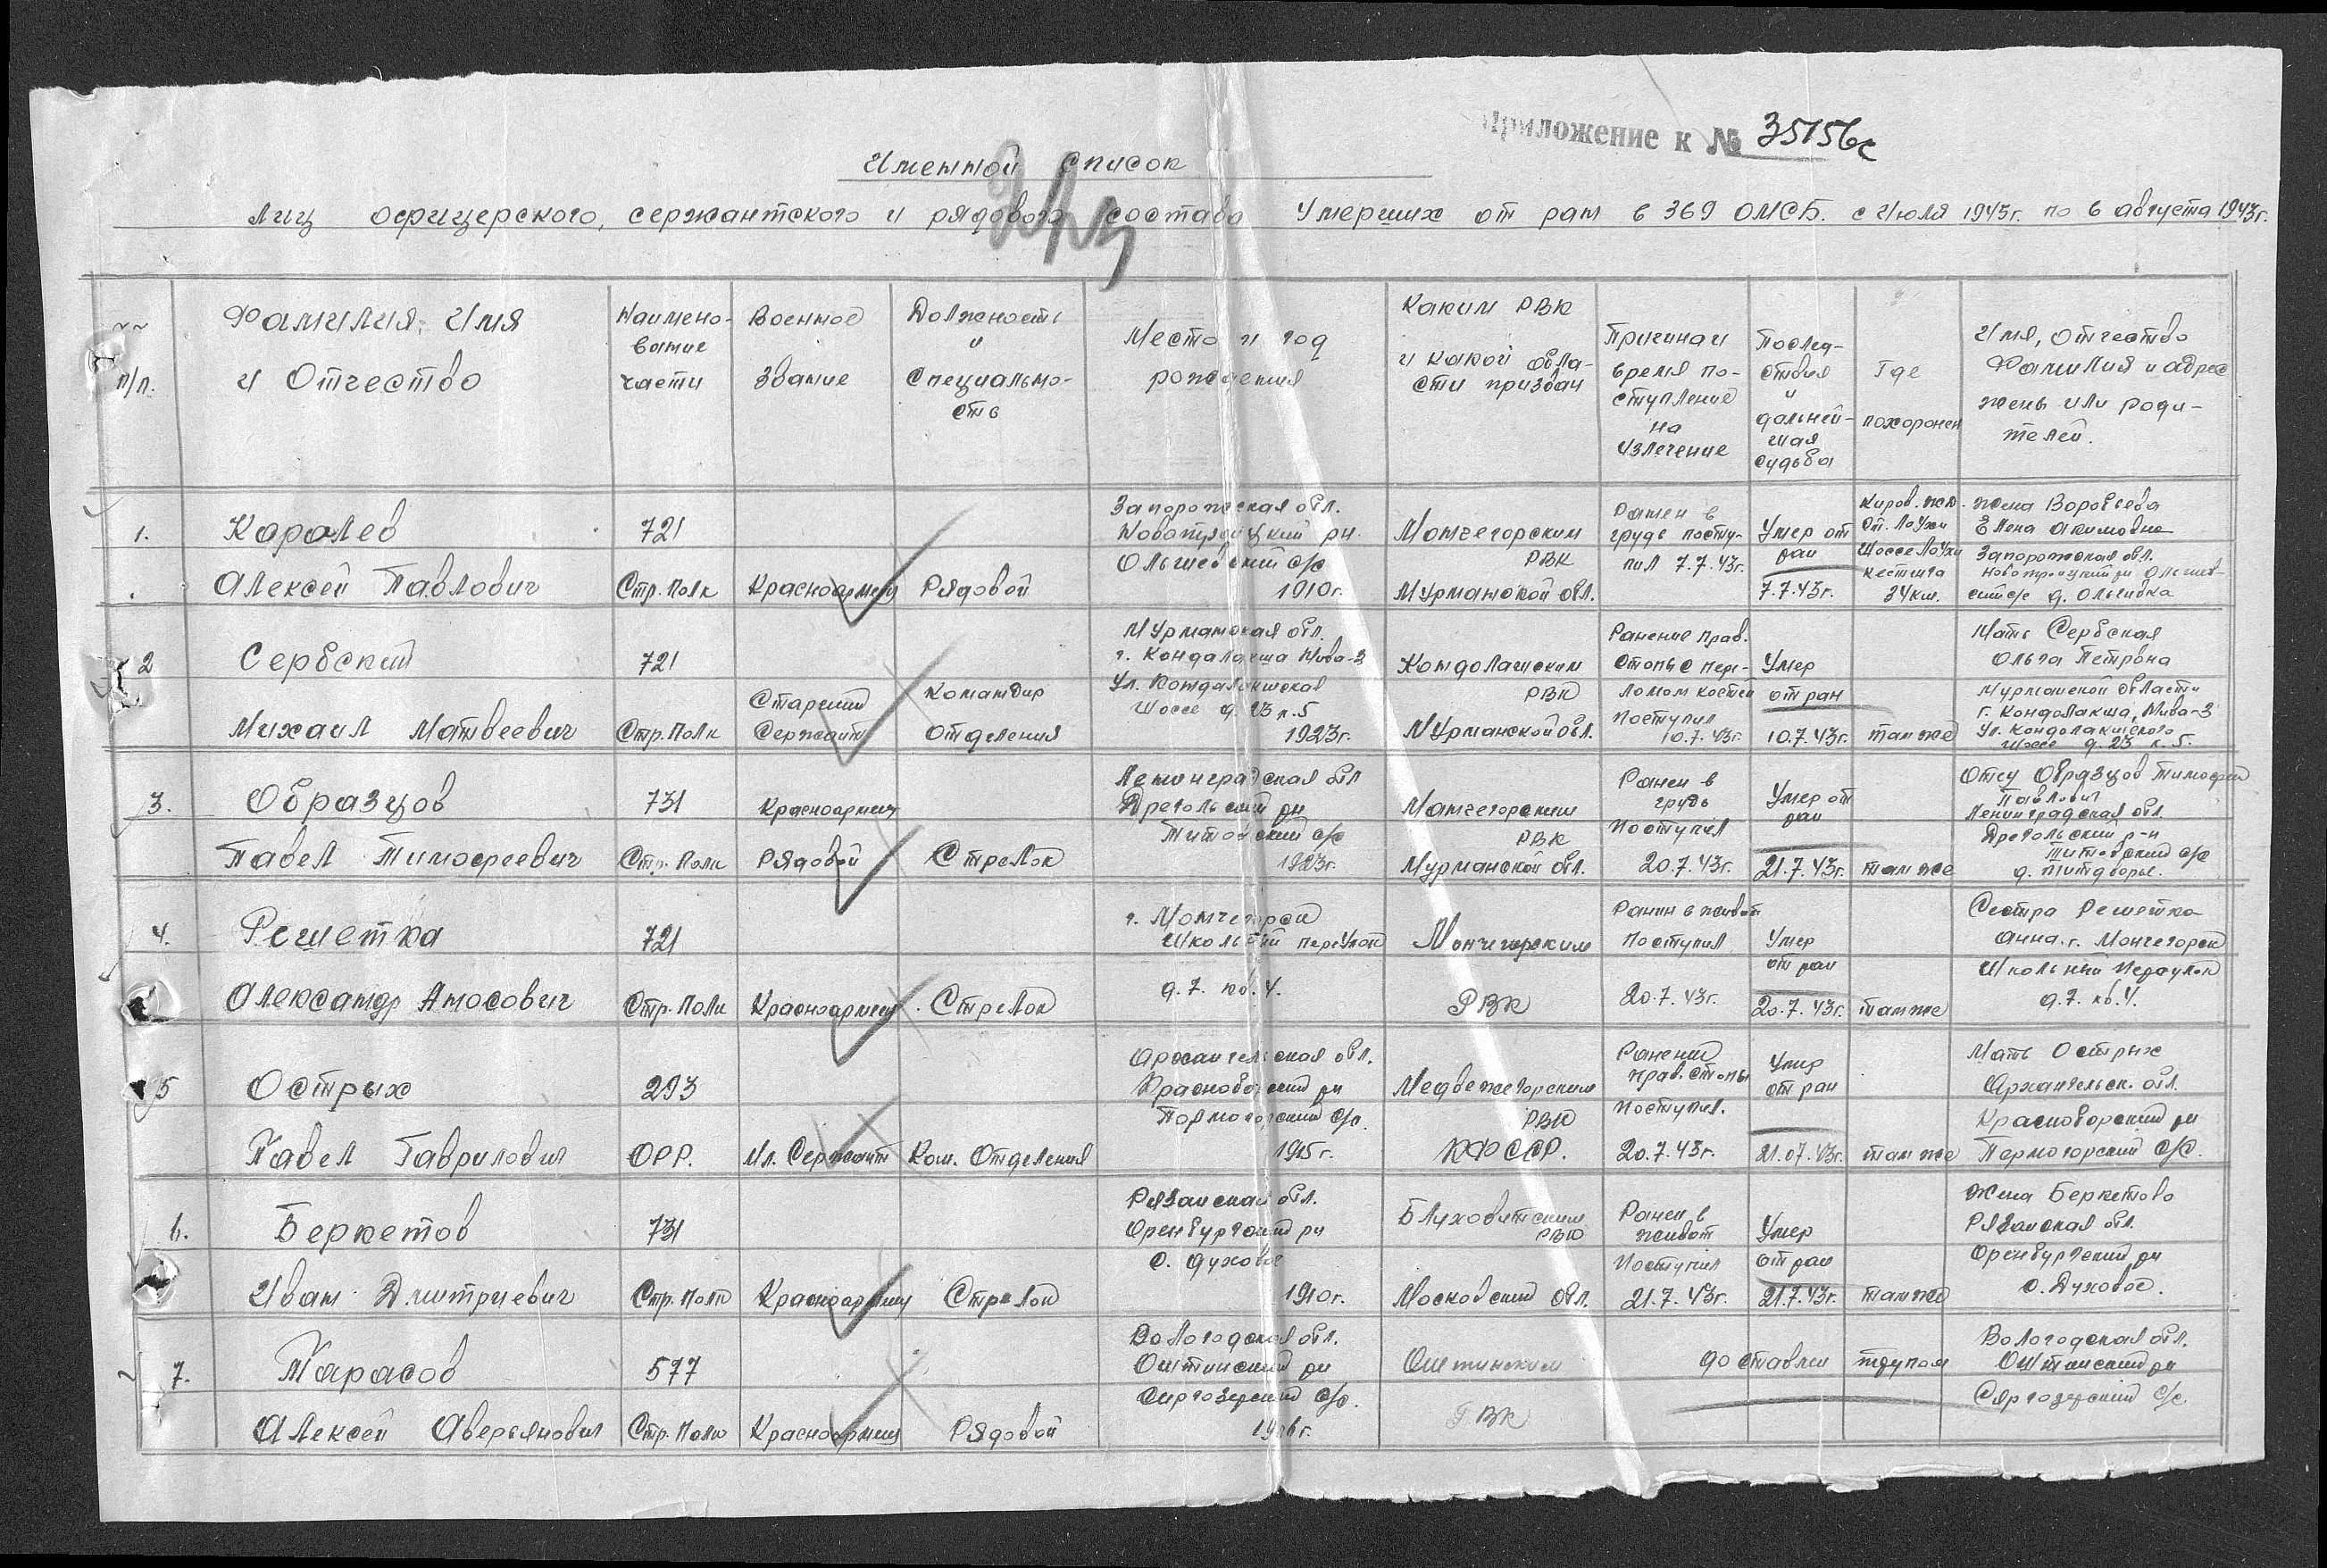 Приложение к № 35156с
Именной список
лиц офицерского, сержантского и рядового состава Умерших от ран в 369 ОМСБ. с Июля 1943г. по 6 августа 1943г.
№№ п/п.
Фамилия, Имя
и Отчество
Наимено-
вание
части
Военное
звание
Должность
и
Специально-
сть
Место и год
рождения
Каким РВК
и какой обла-
сти призван
Причина и
время по-
ступление
на
излечение
Послед-
ствия
и
дальней-
шая
судьба
Где
похоронен
Имя, Отчество
Фамилия и адрес
жены или роди-
телей.
1.
Каралев
Алексей Павлович
721
Стр. Полк
Красноармеец
Рядовой
Запорожская обл.
Новотроицкий рн.
Ольгиевский с/с
1910г.
Мончегорским
РВК
Мурманской обл.
Ранен в
грудь посту-
пил 7.7.43г.
Умер от
ран
7.7.43г.
Киров. жд.
Ст. Лоухи
Шоссе Лоухи
Кестинга
34км.
жена Воробьева
Елена Акимовна
Запорожская обл.
Новотроицкий рн Ольгиев-
ский с/с д. Ольгивка
2
Сербский
Михаил Матвеевич
721
Стр. Полк
Старший
Сержант
Командир
отделения
Мурманская обл.
г. Кондалакша Нива-3
Ул. Кондалакшская
Шоссе д. 23 к. 5
1923г.
Кондолашским
РВК
Мурманской обл.
Ранение прав.
стопы с пере-
ломом костей
Поступил
10.7.43г.
Умер
от ран
10.7.43г.
там же
Мать Сербская
Ольга Петровна
Мурманской области
г. Кондолакша, Нива-3
Ул. Кондолакшского
шоссе д. 23 к. 5.
3.
Образцов
Павел Тимофеевич
731
Стр. Полк
Красноармеец
Рядовой
Стрелок
Ленинградская обл
Дрегольский рн
Титовский с/с
1923г.
Мончегорским
РВК
Мурманской обл.
Ранен в
грудь
Поступил
20.7.43г.
Умер от
ран
21.7.43г.
там же
Отец Образцов Тимофей
Павлович
Ленинградская обл.
Дрегольский р-н
Титовский с/с
4.
Решетка
Александр Амосович
721
Стр. Полк
Красноармеец
Стрелок
г. Мончегорск
Школьный переулок
д. 7. кв. 4.
Мончегорским
РВК
Ранен в живот
Поступил
20.7.43г.
Умер
от ран
20.7.43г.
там же
Сестра Решетка
Анна. г. Мончегорск
Школьный переулок
д. 7. кв. 4.
5
Острых
Павел Гаврилович
293
ОРР.
Мл. Сержант
Ком. Отделения
Архангельская обл.
Красноборский рн
Пермогорский с/с.
1915г.
Медвежегорским
РВК
КФССР.
Ранение
прав. стопы
Поступил.
20.7.43г.
Умер
от ран
21.07.43г.
там же
Мать Острых
Архангельск. обл.
Красноборский рн
Пермогорский с/с.
6.
Беркетов
Иван Дмитриевич
731
Стр. Полк
Красноармеец
Стрелок
Рязанская обл.
Оренбургский рн
с. Духовое
1910г.
Блуховитским
РВК
Московский обл.
Ранен в
живот
Поступил
21.7.43г.
Умер
от ран
21.7.43г.
там же
Жена Беркетова
Рязанская обл.
Оренбургский рн
с. Духовое.
7.
Тарасов
Алексей Аверьянович
577
Стр. Полк
Красноармеец
Рядовой
Вологодская обл.
Оштинский рн
Сяргозерский с/с.
1906г.
Оштинским
РВК
доставлен трупом
Вологодская обл.
Оштинский рн
Сяргозерский с/с.